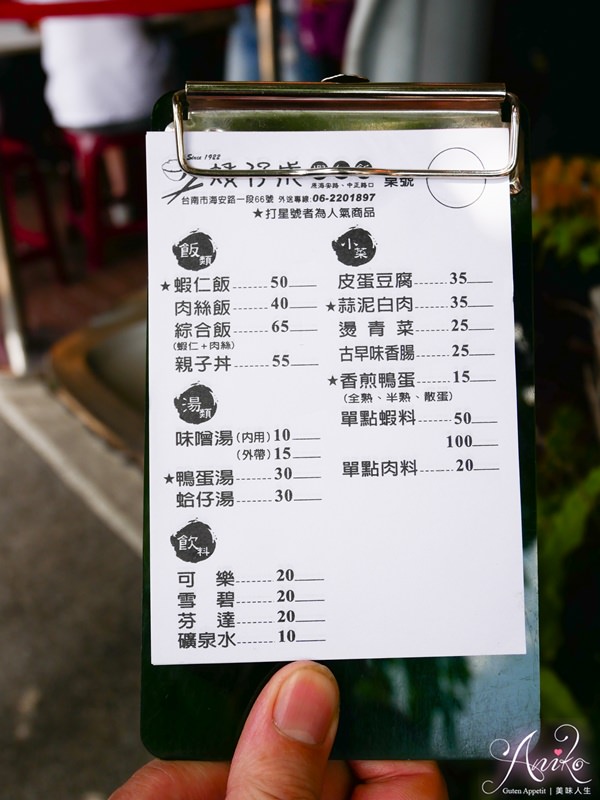 Since 1922
矮仔成
原海安路、中正路口
桌號
台南市海安路一段66號 外送專線:06-2201897
★打星號者為人氣商品
飯類
★蝦仁飯 50
肉絲飯 40
綜合飯 65
(蝦仁+肉絲)
親子丼 55
湯類
味噌湯(內用) 10
(外帶) 15
★鴨蛋湯 30
蛤仔湯 30
飲料
可樂 20
雪碧 20
芬達 20
礦泉水 10
小菜
皮蛋豆腐 35
★蒜泥白肉 35
燙青菜 25
古早味香腸 25
★香煎鴨蛋 15
(全熟、半熟、散蛋)
單點蝦料 50
100
單點肉料 20
Aniko
Guten Appetit | 美味人生